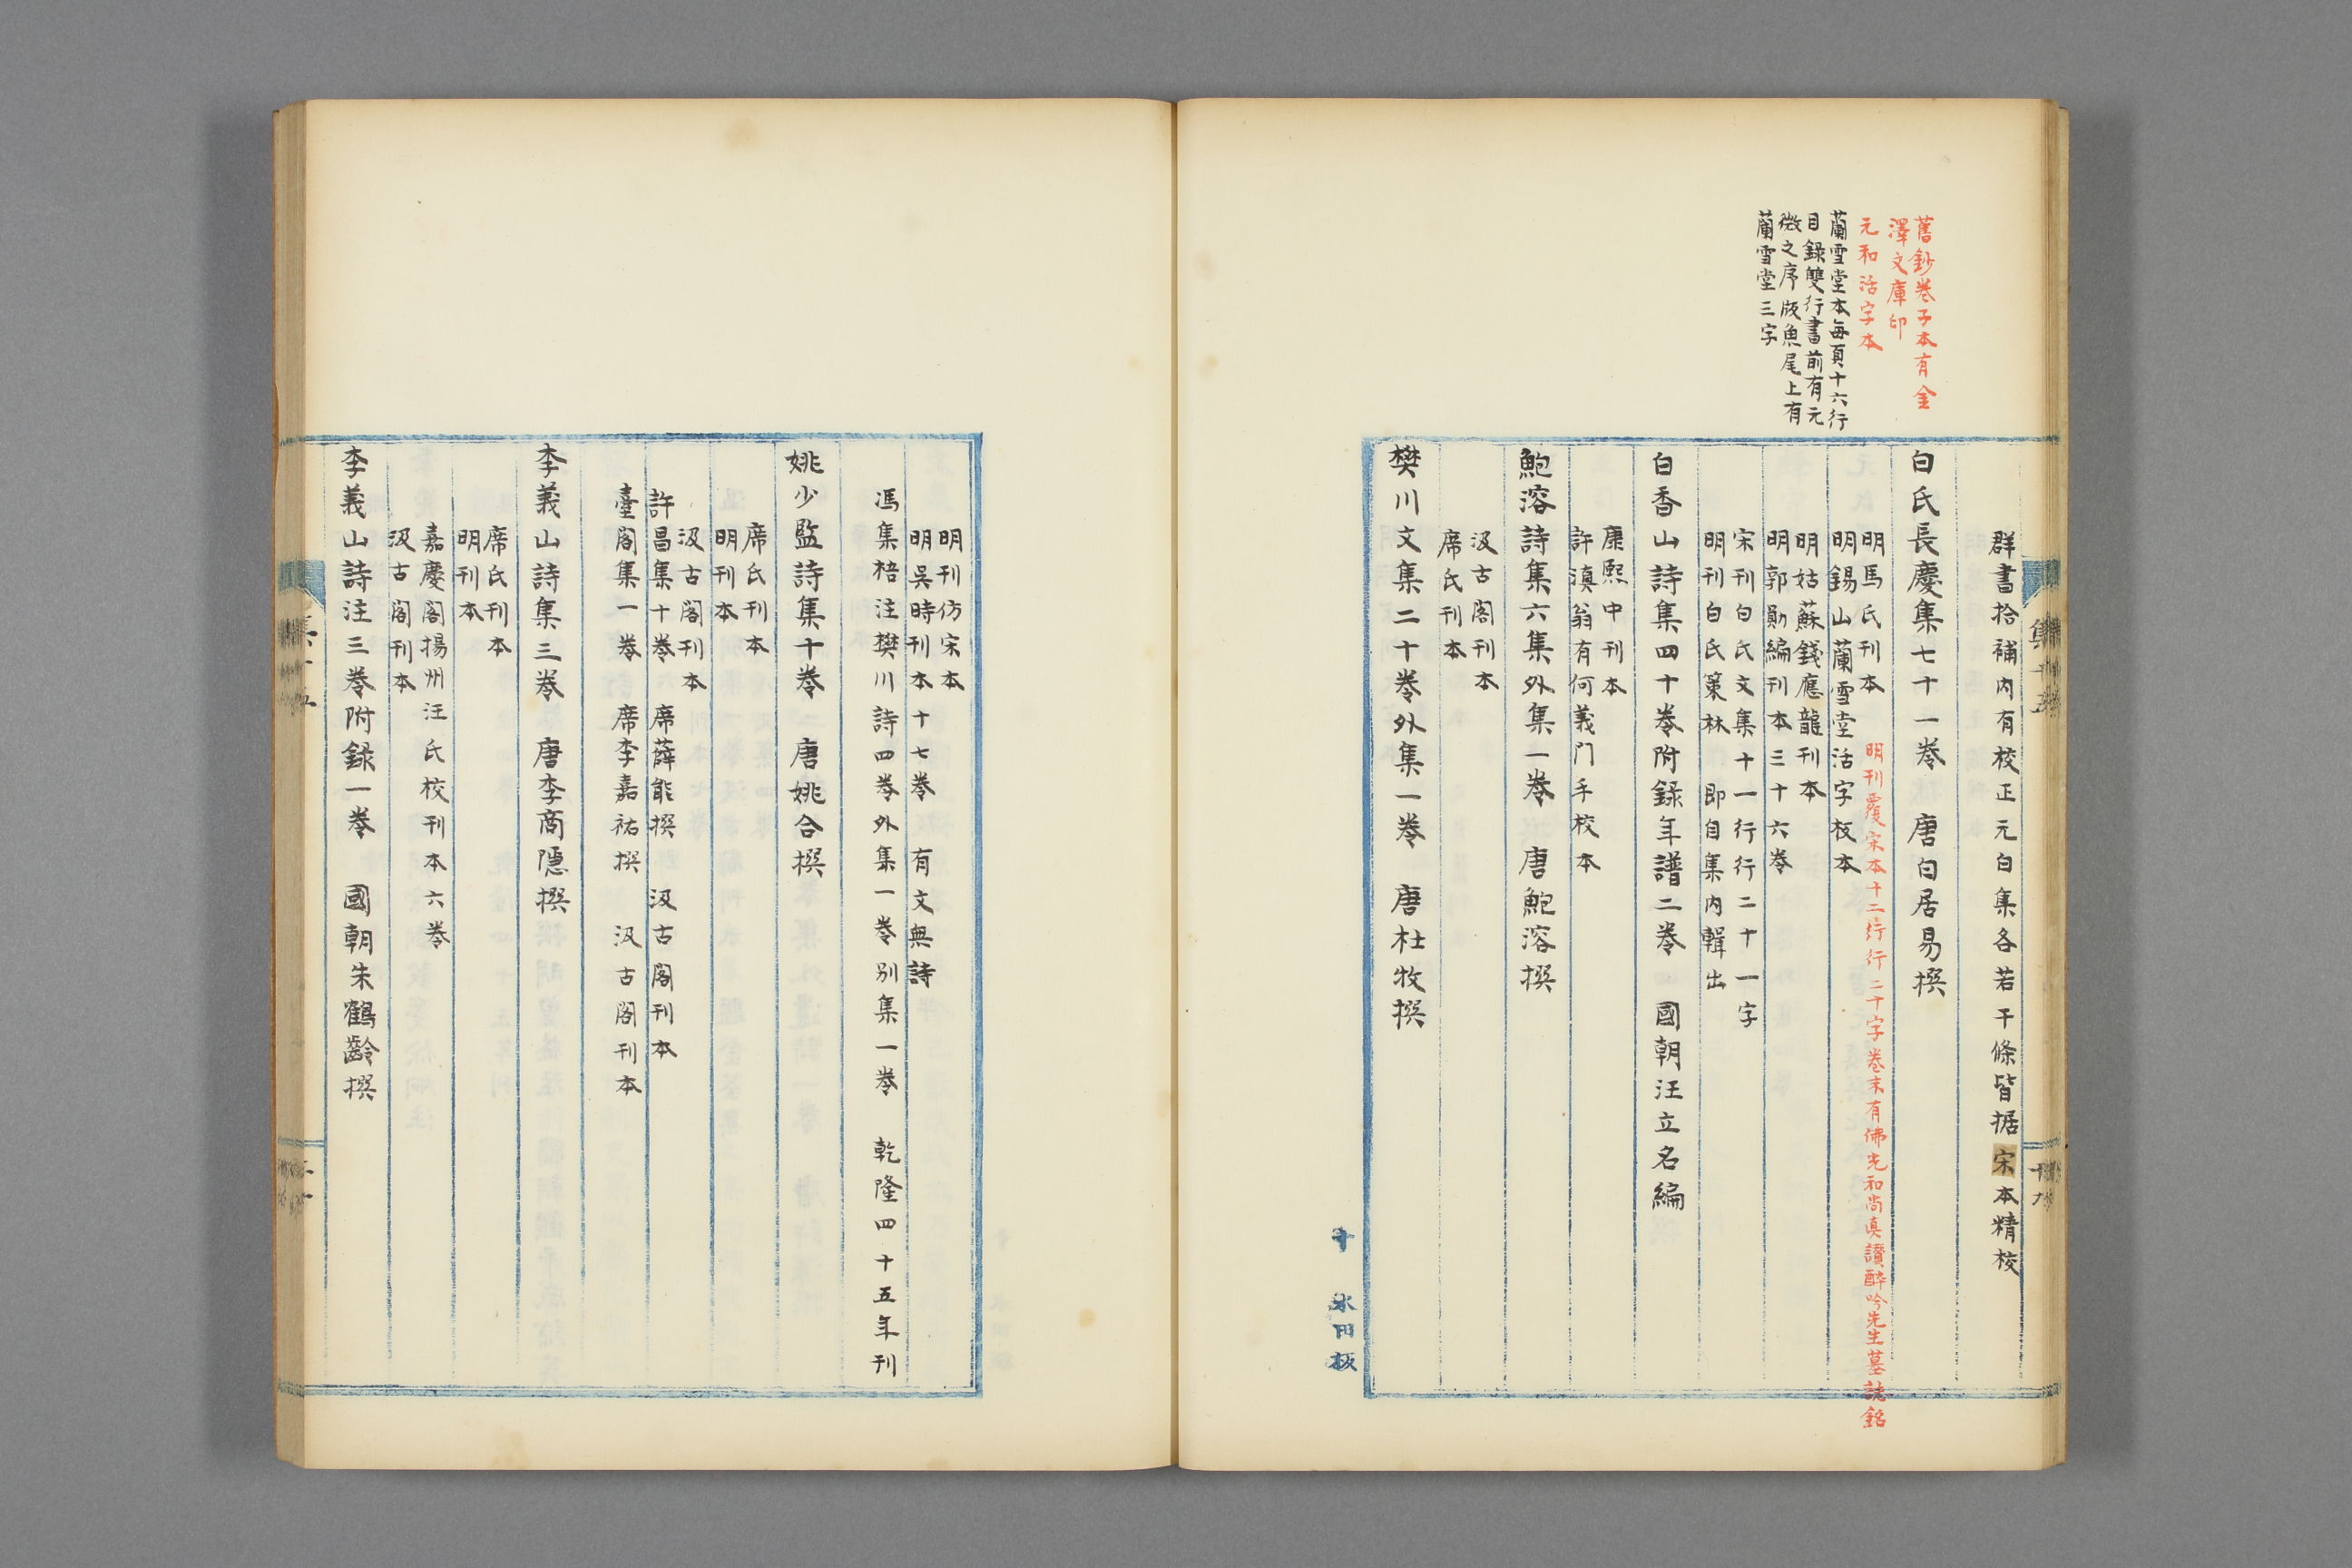 舊鈔卷子本有金
澤文庫印
元和活字本
蘭雪堂本每頁十六行
目錄雙行書前有元
微之序版魚尾上有
蘭雪堂三字
群書拾補內有校正元白集各若干條皆据宋本精校
白氏長慶集七十一卷　唐白居易撰
明馬氏刊本　明刊覆宋本十二行行二十字卷末有佛光和尚真讚醉吟先生墓誌銘
明錫山蘭雪堂活字板本
明姑蘇錢應龍刊本
明郭勛編刊本三十六卷
宋刊白氏文集十一行行二十一字
明刊白氏策林　即自集內輯出
白香山詩集四十卷附錄年譜二卷　國朝汪立名編
康熙中刊本
許滇翁有何義門手校本
鮑溶詩集六集外集一卷　唐鮑溶撰
汲古閣刊本
席氏刊本
樊川文集二十卷外集一卷　唐杜牧撰
明刊仿宋本
明吳時刊本十七卷　有文無詩
馮集梧注樊川詩四卷外集一卷別集一卷　乾隆四十五年刊
姚少監詩集十卷　唐姚合撰
席氏刊本
明刊本
汲古閣刊本
許昌集十卷　席薛能撰　汲古閣刊本
臺閣集一卷　席李嘉祐撰　汲古閣刊本
李義山詩集三卷　唐李商隱撰
席氏刊本
明刊本
嘉慶閣揚州汪氏校刊本六卷
汲古閣刊本
李義山詩注三卷附錄一卷　國朝朱鶴齡撰